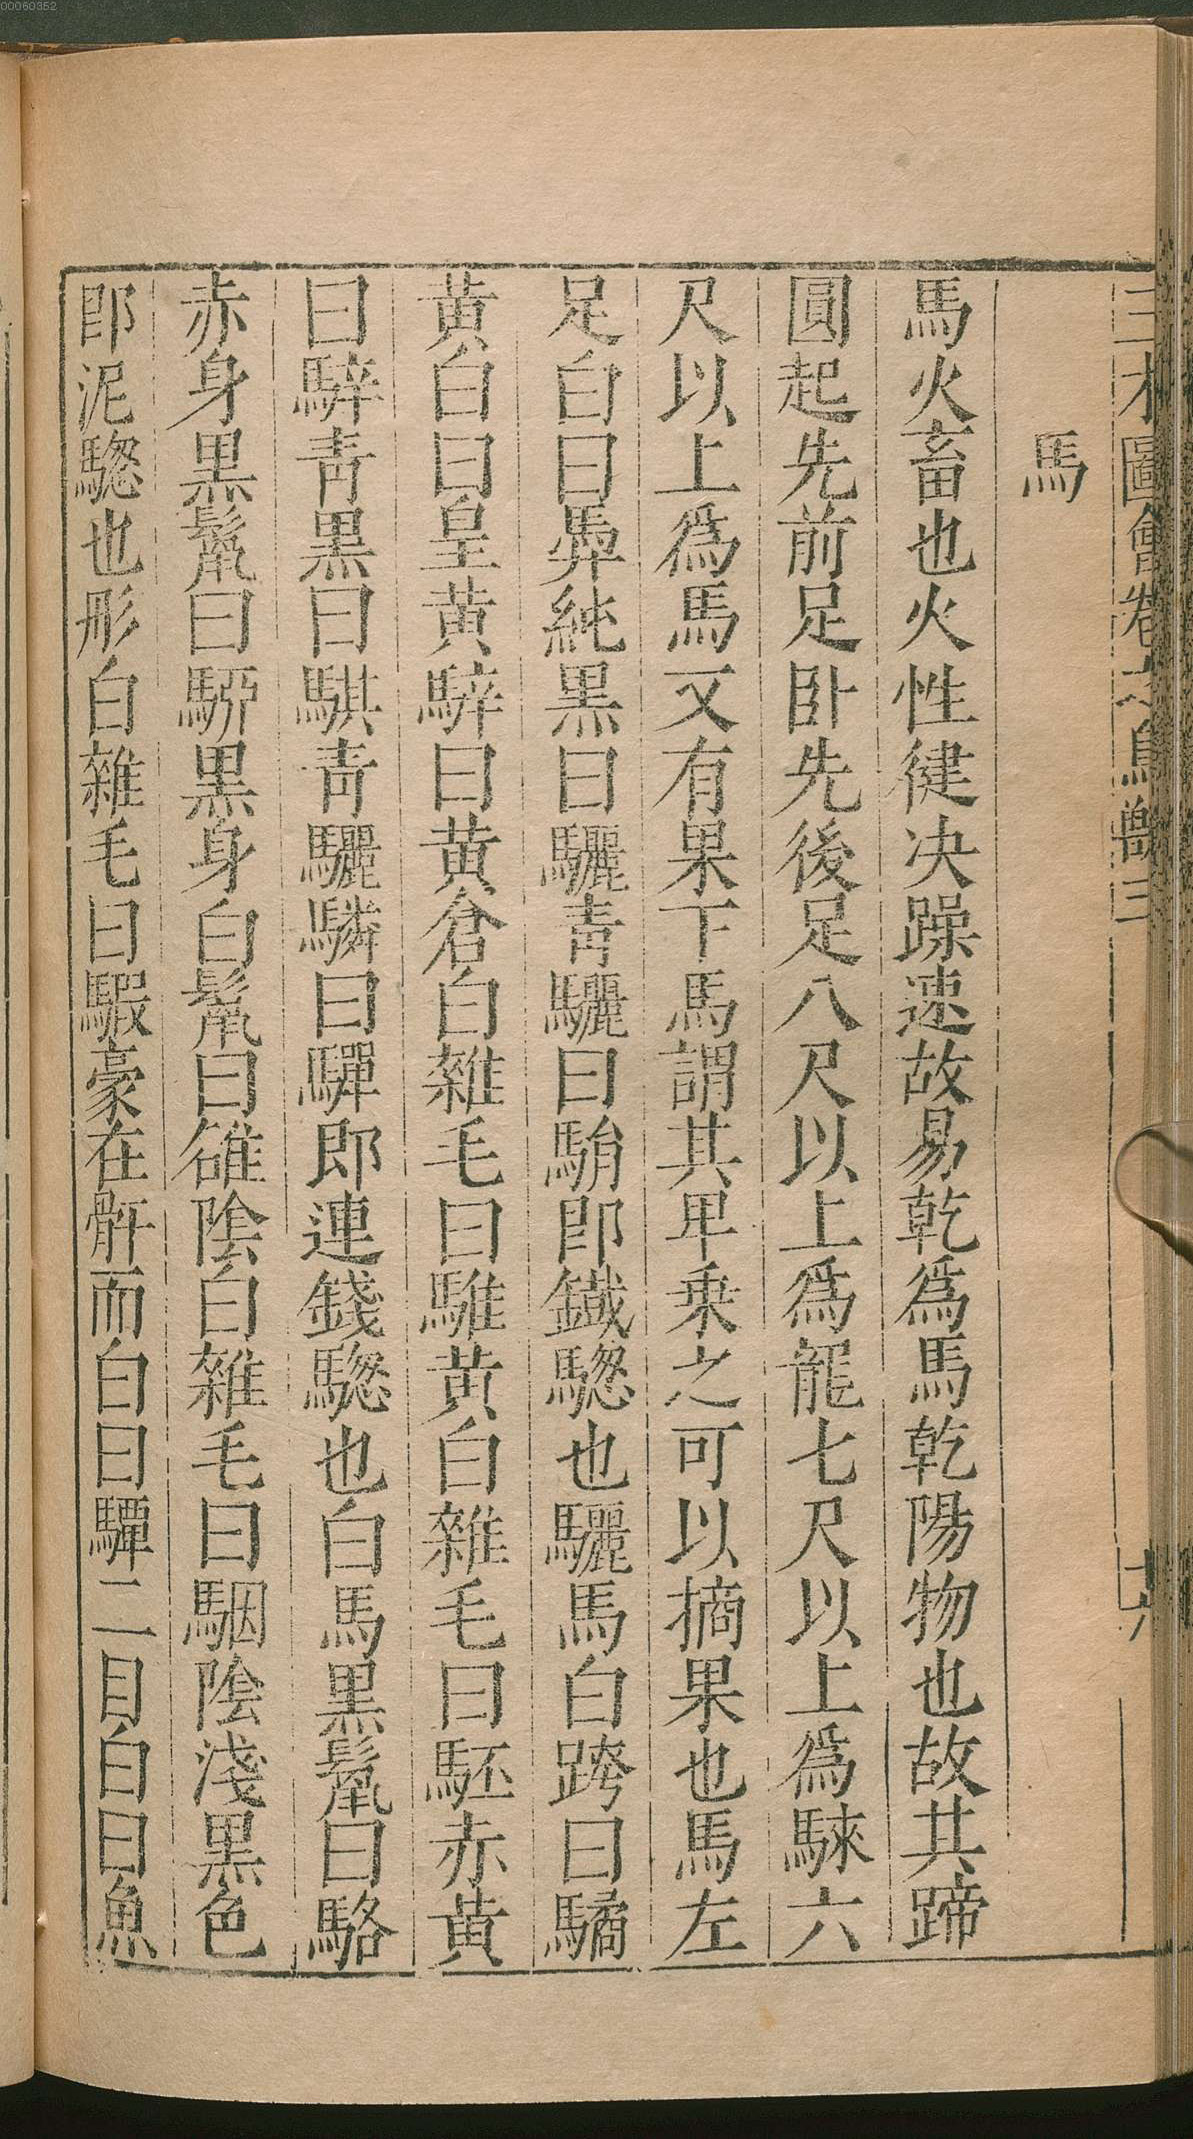 00060352
三才圖會卷六鳥獸三
十六
馬
馬火畜也火性健决躁速故易乾爲馬乾陽物也故其蹄
圓起先前足卧先後足八尺以上爲龍七尺以上爲騋六
尺以上爲馬又有果下馬謂其卑乗之可以摘果也馬左
足白曰馵純黒曰驪靑驪曰駽即鐡騘也驪馬白跨曰驈
黄白曰皇黄騂曰黄倉白雜毛曰騅黄白雜毛曰駓赤黄
曰騂靑黒曰騏靑驪驎曰驒即連錢騘也白馬黒鬛曰駱
赤身黒鬛曰駵黒身白鬛曰雒隂白雜毛曰駰隂淺黒色
即泥騘也彤白雜毛曰騢豪在骭而白曰驔二目白曰魚